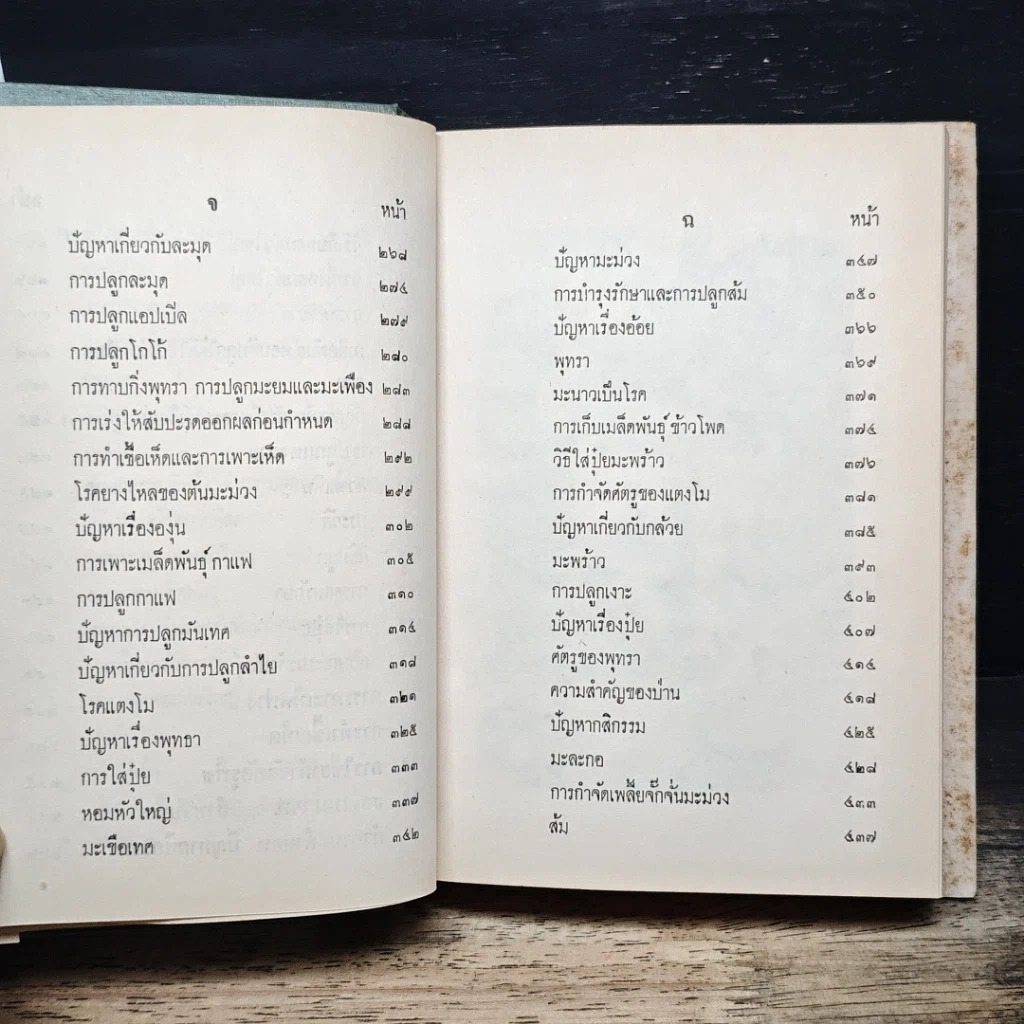 จ
หน้า
ปัญหาเกี่ยวกับละมุด ๒๖๘
การปลูกละมุด ๒๗๔
การปลูกแอปเปิล ๒๗๙
การปลูกโกโก้ ๒๘๐
การทาบกิ่งพุทรา การปลูกมะยมและมะเฟือง ๒๘๓
การเร่งให้สับปะรดออกผลก่อนกำหนด ๒๘๘
การทำเชื้อเห็ดและการเพาะเห็ด ๒๙๒
โรคยางไหลของต้นมะม่วง ๒๙๙
ปัญหาเรื่ององุ่น ๓๐๒
การเพาะเมล็ดพันธุ์กาแฟ ๓๐๕
การปลูกกาแฟ ๓๑๐
ปัญหาการปลูกมันเทศ ๓๑๔
ปัญหาเกี่ยวกับการปลูกลำไย ๓๑๘
โรคแตงโม ๓๒๑
ปัญหาเรื่องพุทธา ๓๒๕
การใส่ปุ๋ย ๓๓๓
หอมหัวใหญ่ ๓๓๗
มะเขือเทศ ๓๔๒
ฉ
หน้า
ปัญหามะม่วง ๓๔๗
การบำรุงรักษาและการปลูกส้ม ๓๕๐
ปัญหาเรื่องอ้อย ๓๖๖
พุทรา ๓๖๙
มะนาวเป็นโรค ๓๗๑
การเก็บเมล็ดพันธุ์ข้าวโพด ๓๗๔
วิธีใส่ปุ๋ยมะพร้าว ๓๗๖
การกำจัดศัตรูของแตงโม ๓๘๑
ปัญหาเกี่ยวกับกล้วย ๓๘๕
มะพร้าว ๓๙๓
การปลูกเงาะ ๔๐๒
ปัญหาเรื่องปุ๋ย ๔๐๗
ศัตรูของพุทรา ๔๑๔
ความสำคัญของป่าน ๔๑๘
ปัญหากสิกรรม ๔๒๕
มะละกอ ๔๒๘
การกำจัดเพลี้ยจั๊กจั่นมะม่วง ๔๓๓
ส้ม ๔๓๗